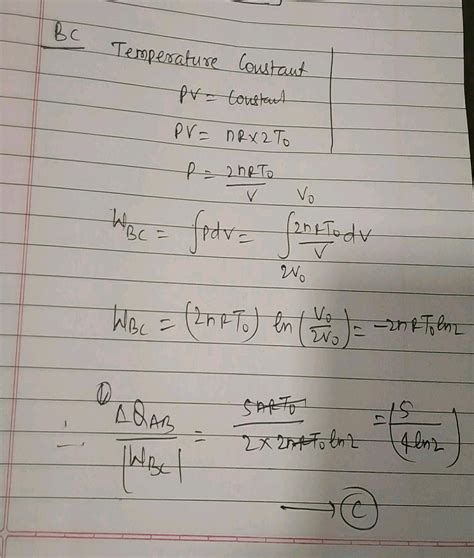 BC Temperature Constant
PV = Constant
PV = nR×2T₀
P = 2nRT₀/V
W_BC = ∫PdV = ∫_{2V₀}^{V₀} 2nRT₀/V dV
W_BC = (2nRT₀) ln(V₀/2V₀) = -2nRT₀ln2
① ∴ ΔQ_AB/|W_BC| = 5nRT₀/2×2nRT₀ln2 = (5/4ln2)
→ Ⓒ